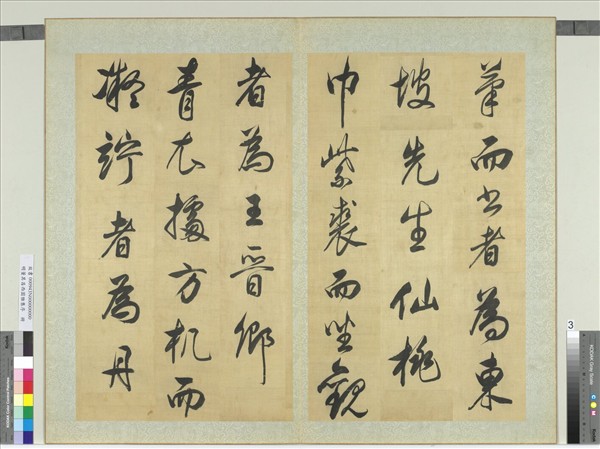 筆而書者為東
坡先生仙桃
巾紫裘而坐觀
者為王晉卿
青衣據方机而
凝竚者為丹
3